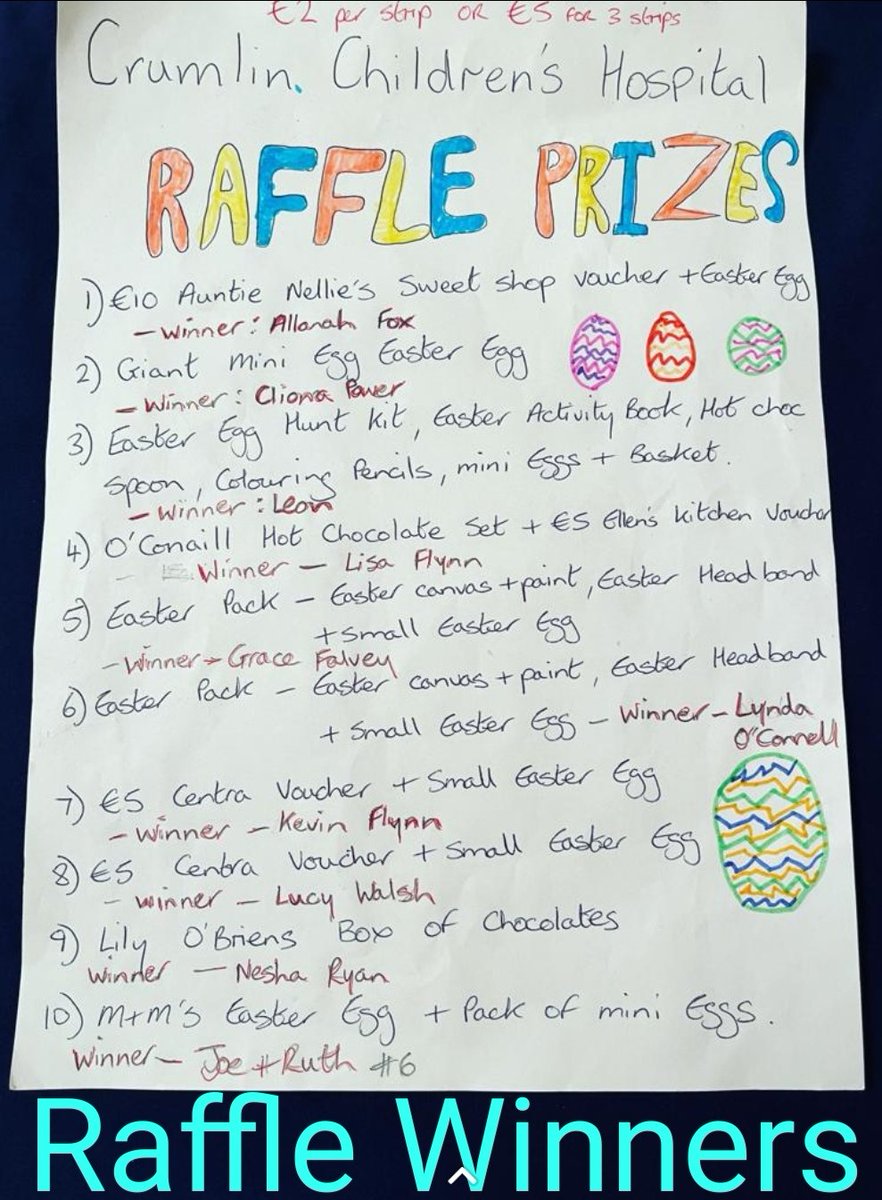 €2 per strip OR €5 FOR 3 strips
Crumlin. Children's Hospital
RAFFLE PRIZES
1) €10 Auntie Nellie's Sweet shop voucher + Easter Egg
- Winner: Allanah Fox
2) Giant Mini Egg Easter Egg
- Winner: Cliona Power
3) Easter Egg Hunt Kit, Easter Activity Book, Hot choc
Spoon, Colouring Pencils, mini Eggs + Basket.
- Winner: Leon
4) O'Conaill Hot Chocolate Set + €5 Ellen's Kitchen Voucher
- Winner - Lisa Flynn
5) Easter Pack - Easter canvas + paint, Easter Headband
+ Small Easter Egg
- Winner - Grace Falvey
6) Easter Pack - Easter canvas + paint, Easter Headband
+ Small Easter Egg - Winner - Lynda
O'Connell
7) €5 Centra Voucher + Small Easter Egg
- Winner - Kevin Flynn
8) €5 Centra Voucher + Small Easter Egg
- Winner - Lucy Walsh
9) Lily O'Briens Box of Chocolates
Winner - Nesha Ryan
10) M+M's Easter Egg + Pack of mini Eggs.
Winner - Joe + Ruth #6
Raffle Winners